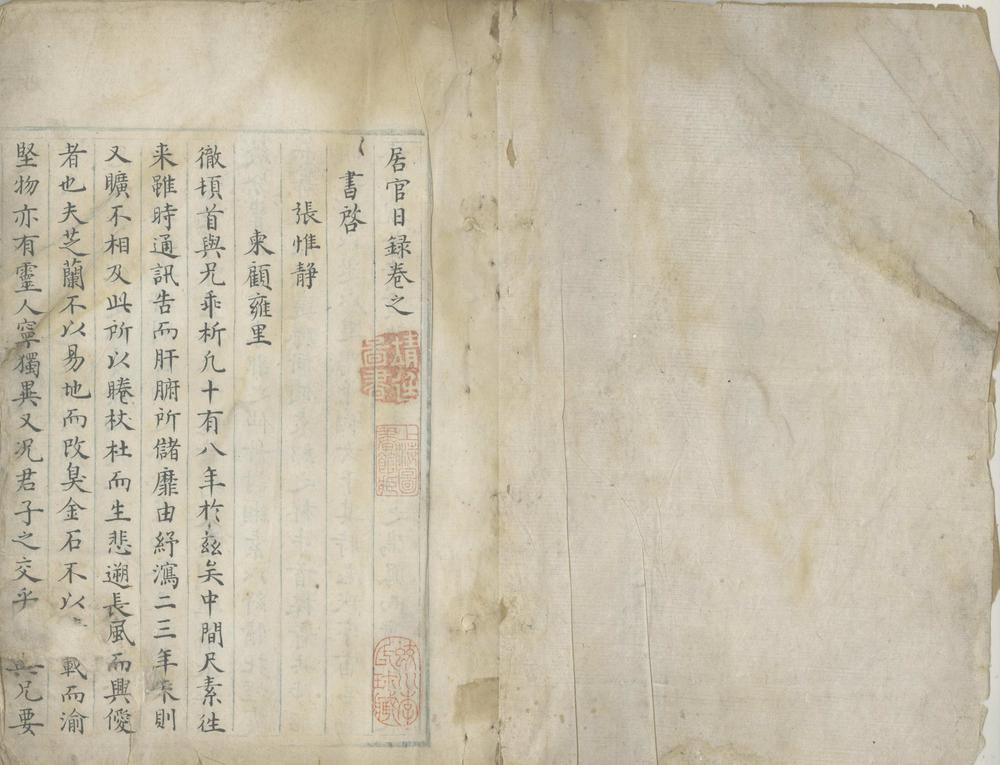 居官日録卷之
書啓
張惟静
柬顧雍里
徹頓首與兄乖析凢十有八年於兹矣中間尺素徃
来雖時通訊告而肝腑所儲靡由紓瀉二三年来則
又曠不相及此所以睠杕杜而生悲遡長風而興僾
者也夫芝蘭不以易地而改臭金石不以 載而渝
堅物亦有靈人寧獨異又况君子之交乎 與兄要
上海圖書館藏